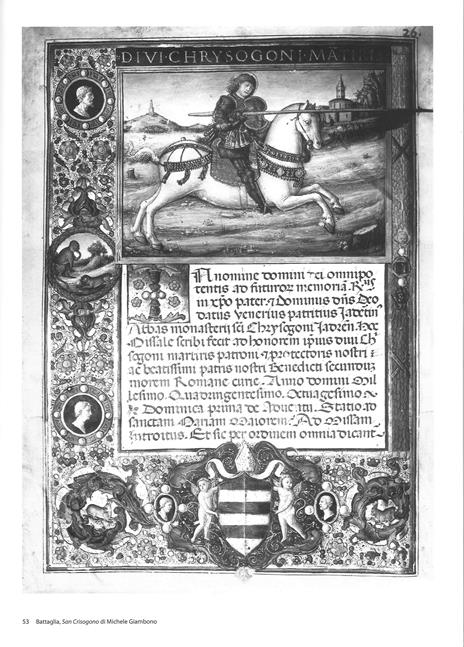 26.
DIVI·CHRYSOGONI·MA
In nomine domini dei omnipo
tentis ad futuror memoriã R
in xpo pater & Dominus dñs Deo
datus Venerius patritius Jadren
Abbas monasterij sci Chrysogoni Jadreñ hoc
Missale scribi fecit ad honorem ipsius diui Ch
sogoni martiris patroni & protectoris nostri
ac beatissimi patris nostri Benedicti secundũ
morem Romane curie. Anno domini Mil
lesimo. Quadringentesimo. Octuagesimo
Dominica prima de Aduentu. Statio ad
sanctam Mariam Maiorem. Ad Missam
Introitus. Et sic per ordinem omnia dicant
53 Battaglia, San Crisogono di Michele Giambono